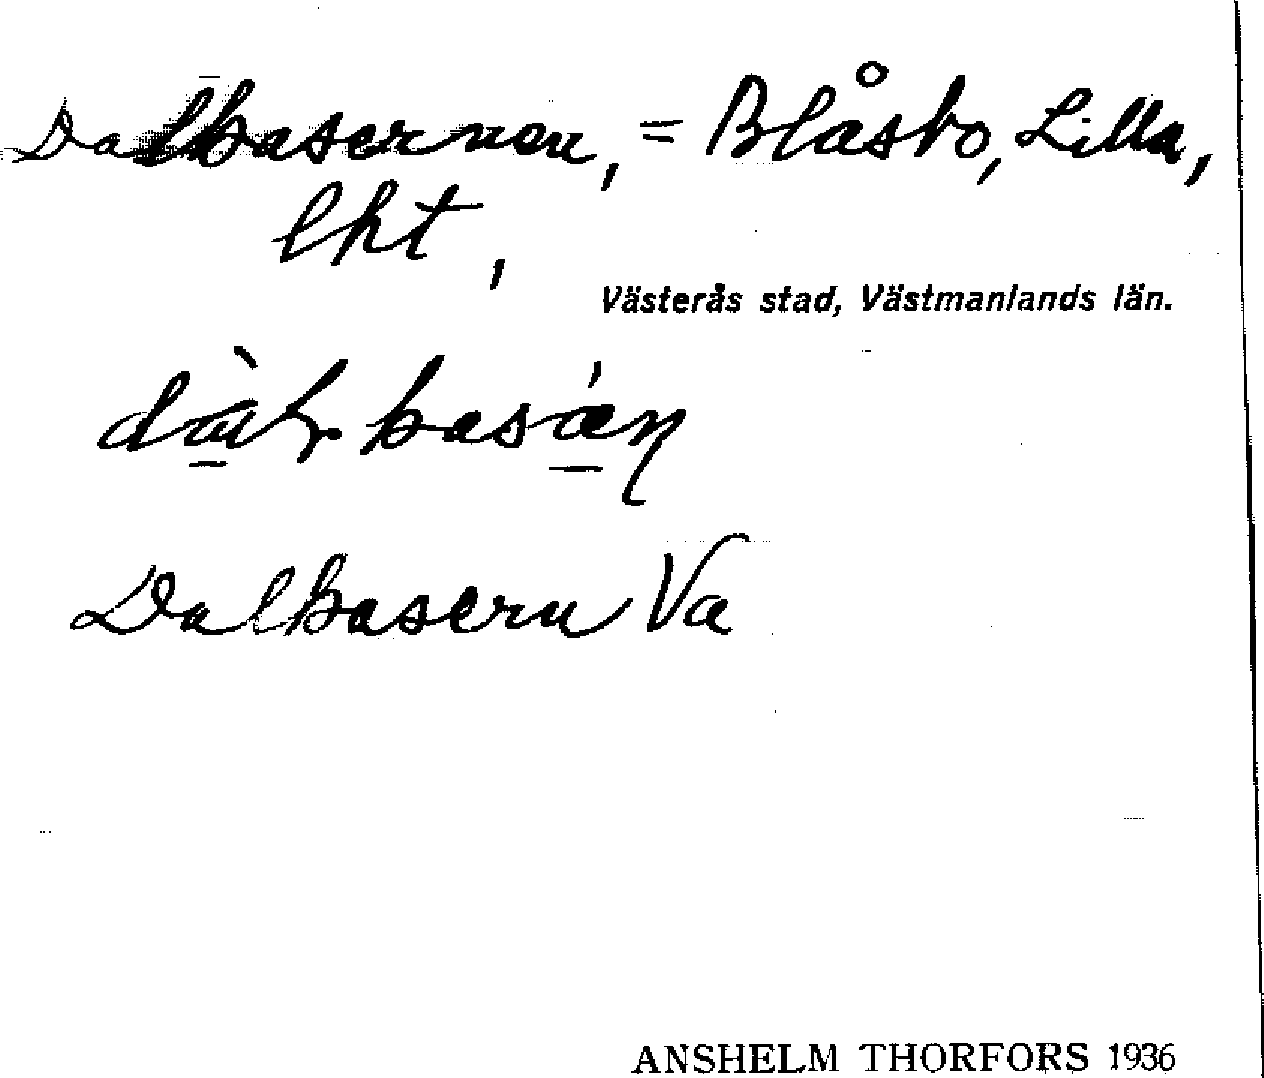 Dalkasernen, = Blåsbo, Lilla,
lht,
Västerås stad, Västmanlands län.
Dalkasern Va
ANSHELM THORFORS 1936